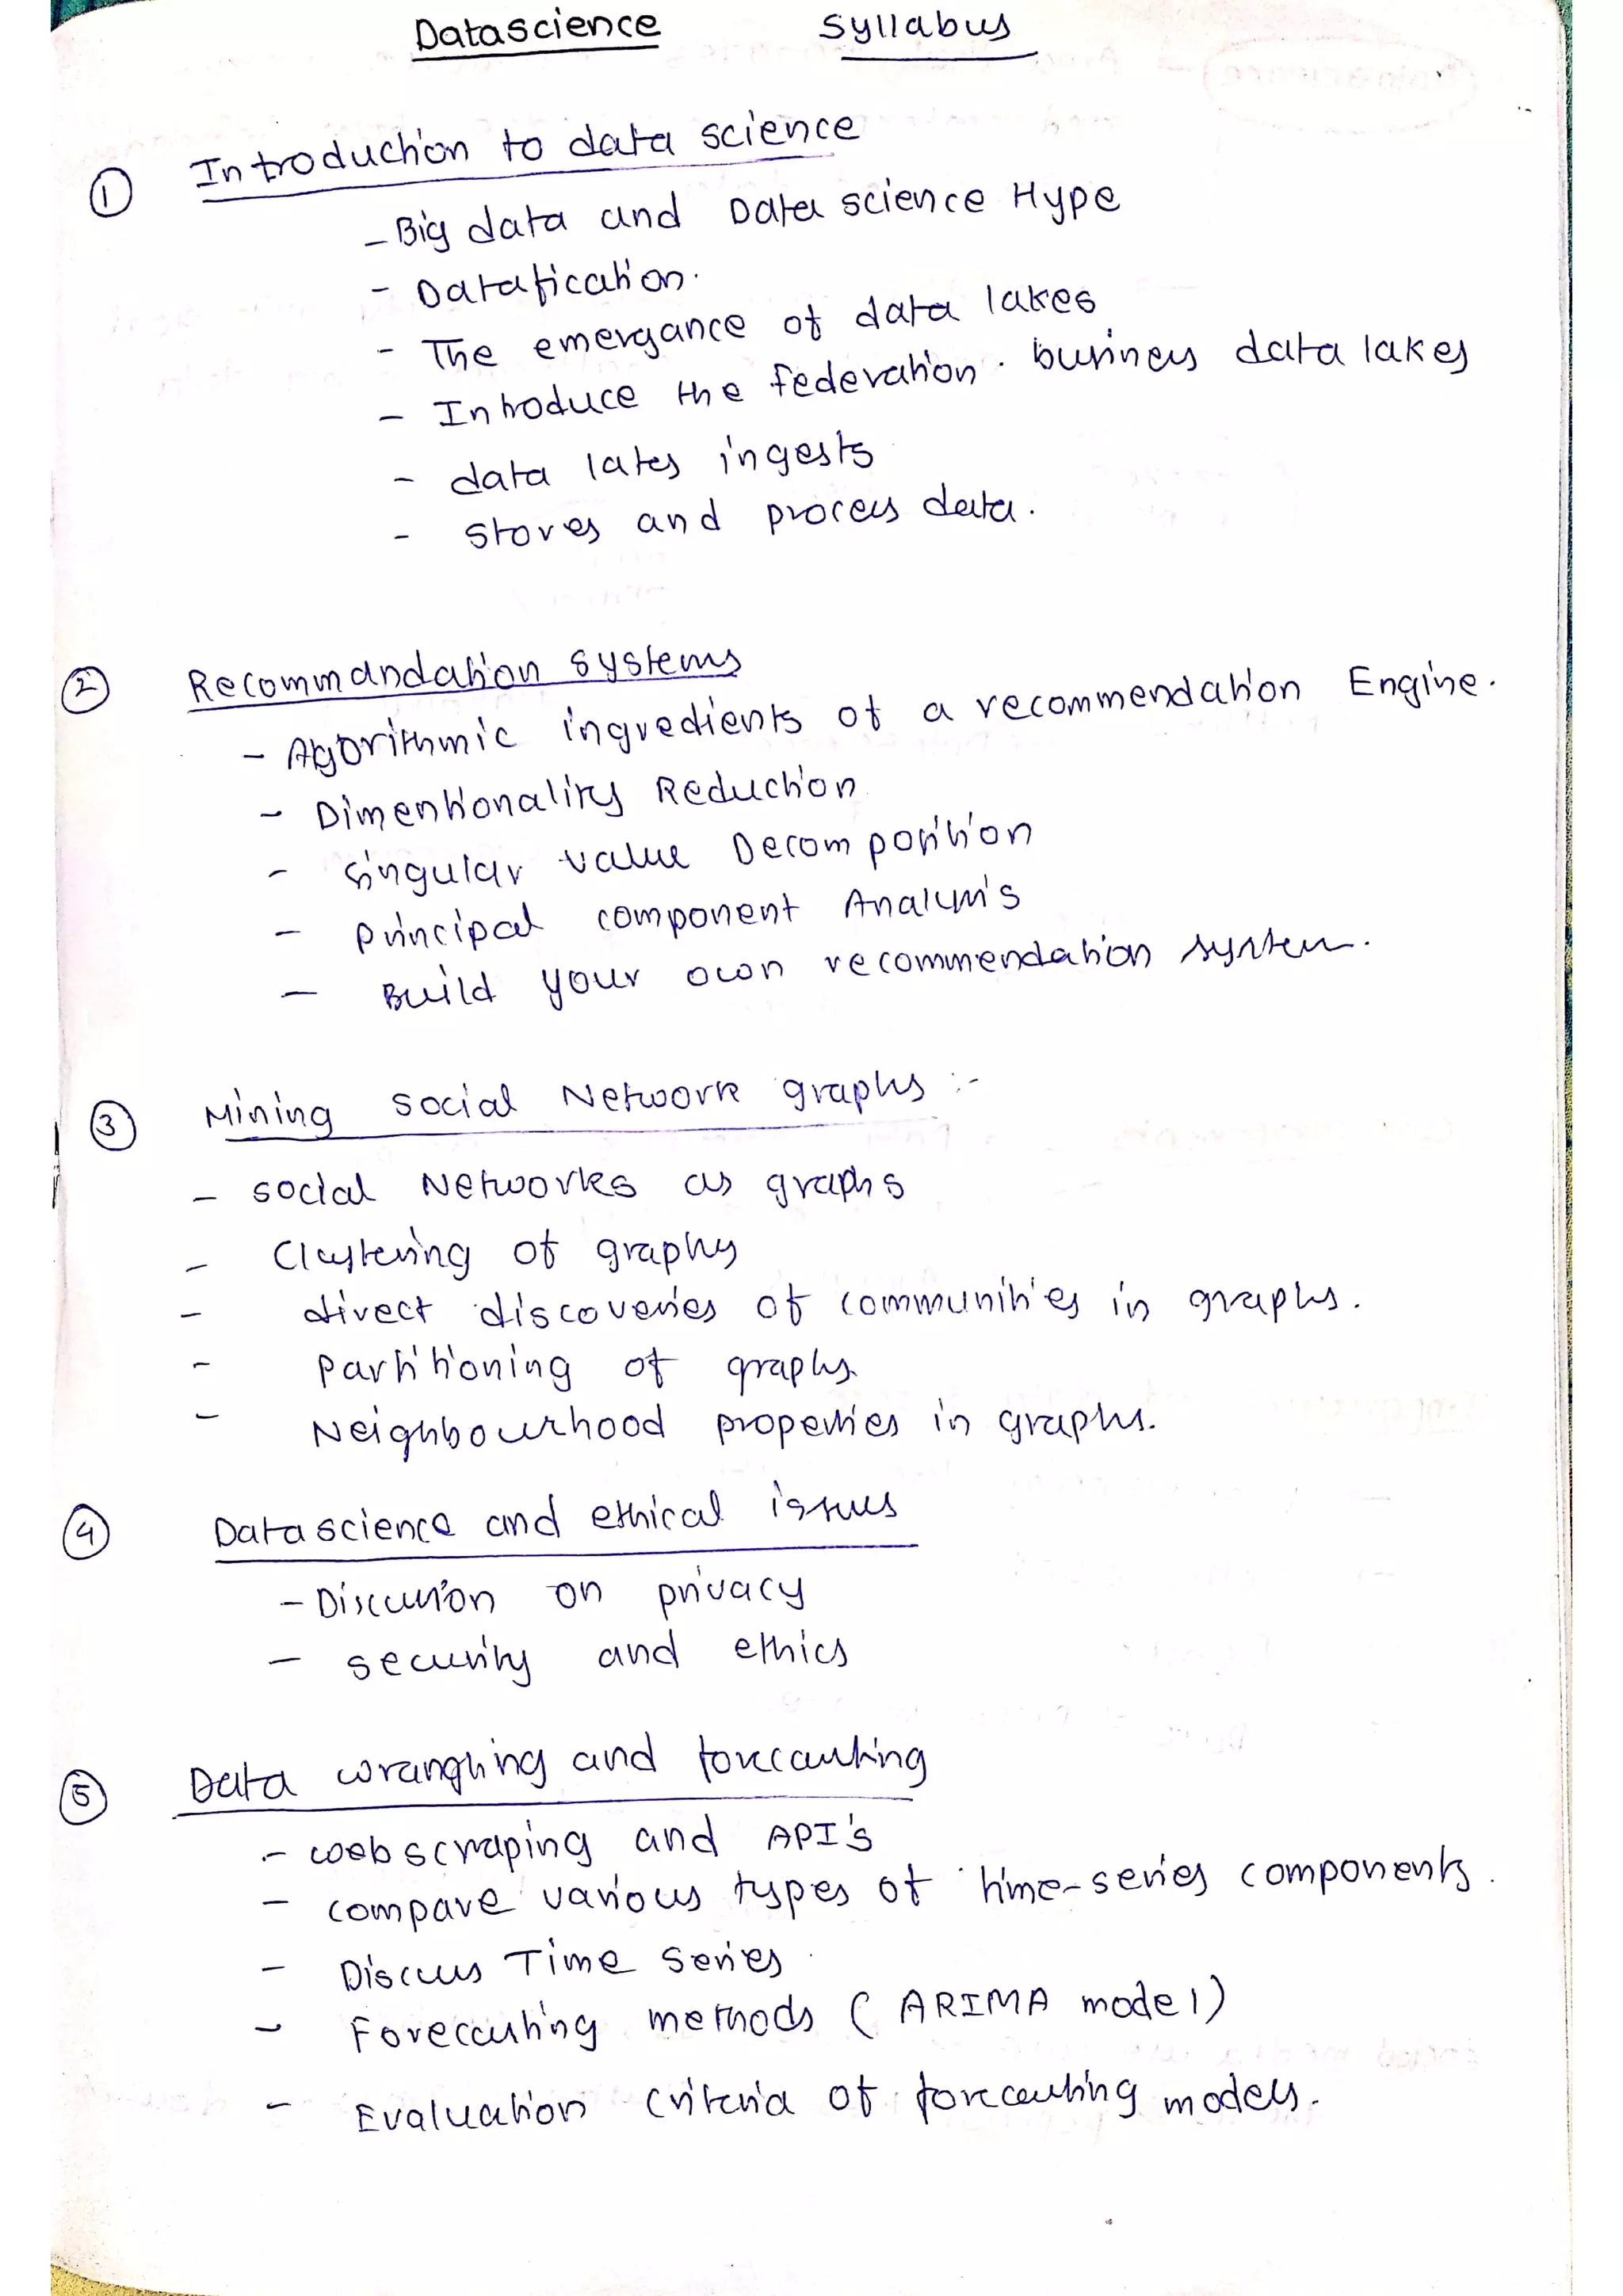 Datascience Syllabus
① Introduction to data science
- Big data and Data science Hype
- Datafication.
- The emergance of data lakes
- Introduce the federation. business data lakes
- data lakes ingests
- stores and process data.
② Recommandation systems
- Algorithmic ingredients of a recommendation Engine.
- Dimentionality Reduction
- Singular value Decomposition
- principal component Analysis
- Build your own recommendation system.
③ Mining social Network graphs :-
- social Networks as graphs
- Clustering of graphs
- direct discoveries of communities in graphs.
- partitioning of graphs.
- Neighbourhood properties in graphs.
④ Datascience and ethical issues
- Discussion on privacy
- security and ethics
⑤ Data wrangling and forecasting
- web scraping and API's
- compare various types of time-series components.
- Discuss Time Series
- Forecasting methods (ARIMA model)
- Evaluation criteria of forecasting models.